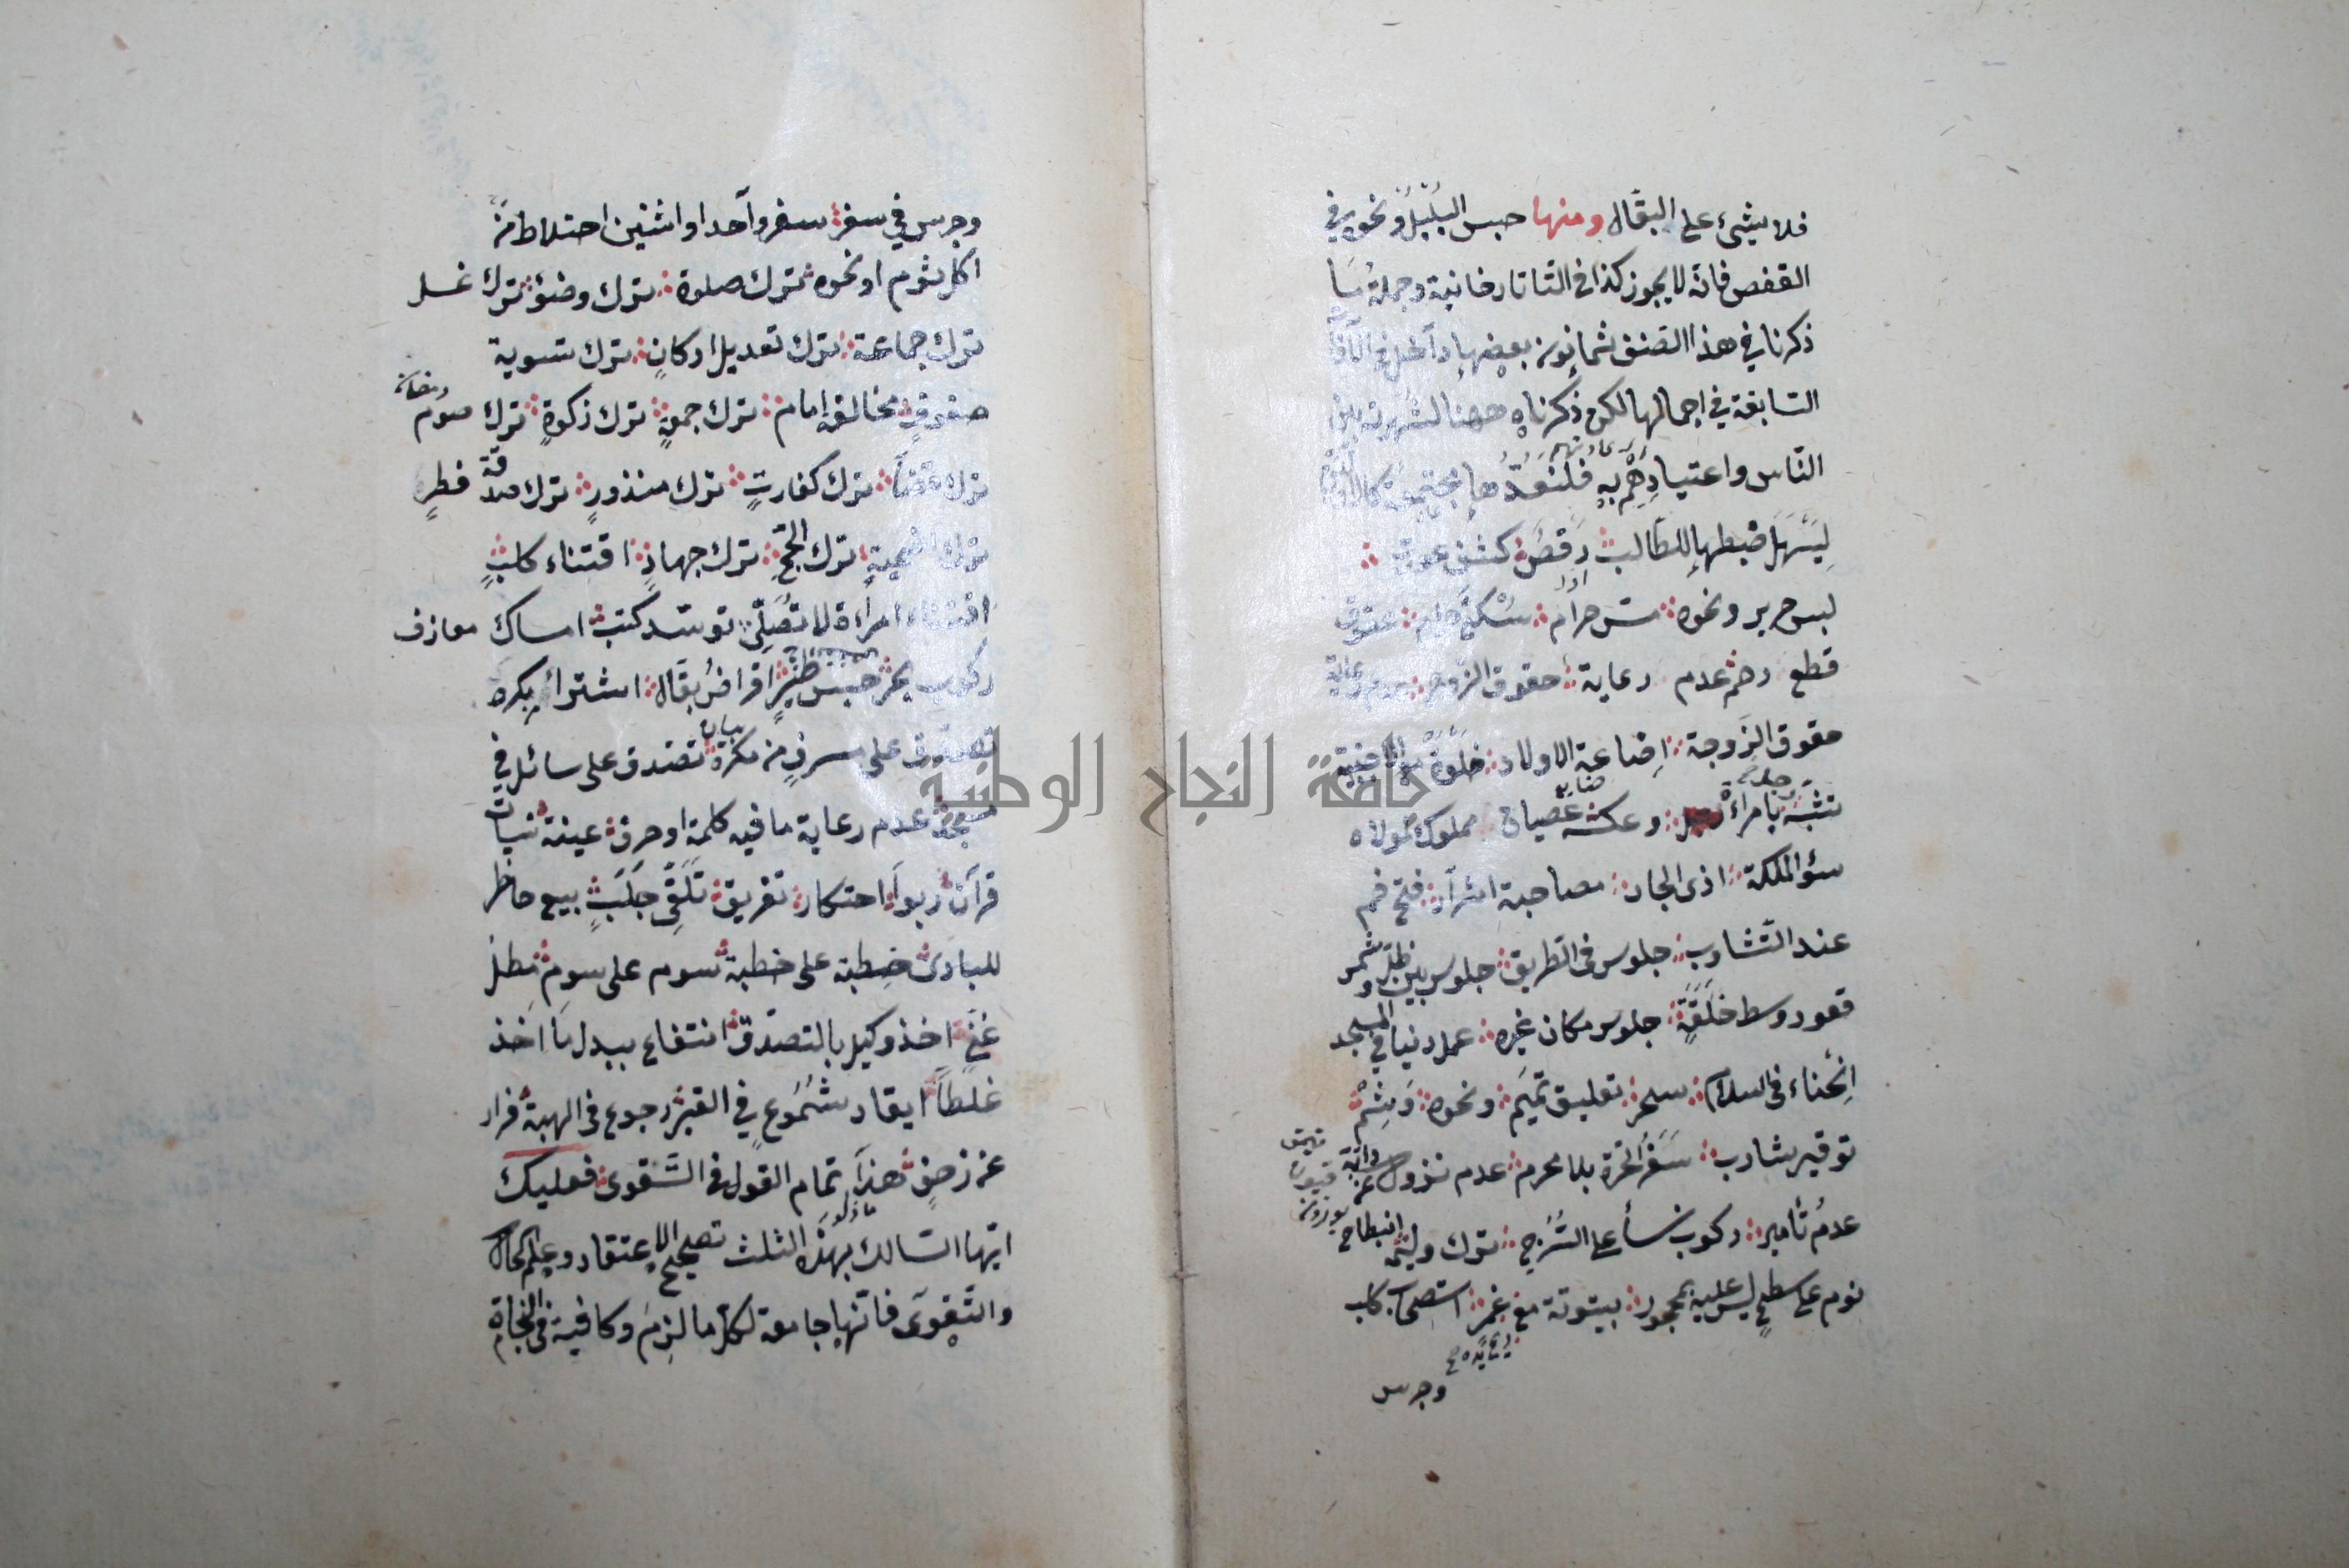 فلا شئ على البقال ومنها حبس البلبل ونحوه في
القفص فانه لا يجوز كذا في التاتارخانية وجملة ما
ذكرنا في هذا الصنف ثمانون بعضها داخل في الآفات
السابقة في اجمالها لكن ذكرناه ههنا لشهرته بين
الناس واعتيادهم به فلنعدها مجتمعة كالاول
عادتهم
ليسهل ضبطها للطالب رقص كشف عورة
لبس حرير ونحوه مس حرام سكنى حرام عقوق
قطع رحم عدم رعاية حقوق الزوج عدم رعاية
حقوق الزوجة اضاعة الاولاد خلوة بالاجنبية
تشبه بامراة رجل وعكسه عصيان مملوك لمولاه
سؤ الملكة اذى الجار مصاحبة اشرار فتح فم
عند التثاوب جلوس في الطريق جلوس بين ظل وشمس
قعود وسط حلقة جلوس مكان غيره عمل دنيا في المسجد
انحناء في السلام سحر تعليق تميم ونحوه وشم
توقير شارب سفر الحرة بلا محرم عدم نزول عن دابة
عدم تأمير ركوب نسأ على السرج ترك وليمة انبطاح
نوم على سطح ليس عليه بمحجور بيتوتة مع غمر استصحاب كلب
وجرس
وجرس في سفر سفر واحد او اثنين اختلاط من
اكل ثوم او نحوه ترك صلوة ترك وضؤ ترك غسل
ترك جماعة ترك تعديل اركان ترك تسوية
صفوف مخالفة امام ترك جمعة ترك زكوة ترك صوم رمضان
ترك قضأ ترك كفارت ترك منذور ترك صدقة فطر
ترك اضحية ترك الحج ترك جهاد اقتناء كلب
اقتناء امرأة لا تصلى توسد كتب امساك معازف
ركوب بحر حبس طير اقراض بقال اشتراء بكره
تصدق على مسرف من مكره تصدق على سائل في
مسجد عدم رعاية ما فيه كلمة او حرف عينة نسيان
قرآن ربوا احتكار تفريق تلقى جلب بيع حاضر
للبادى خطبة على خطبة سوم على سوم مطل
غني اخذ وكيل بالتصدق انتفاع ببدل ما اخذ
غلطا ايقاد شموع في القبر رجوع في الهبة فرار
عن زحف هذا تمام القول في التقوى فعليك
ايها السالك بهذه الثلث تصحيح الاعتقاد وعلم الحال
والتقوى فانها جامعة لكل ما لزم وكافية في النجاة
جامعة النجاح الوطنية